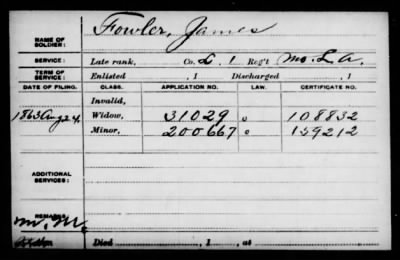 NAME OF SOLDIER: Fowler, James
SERVICE: Late rank, Co. L. 1 Reg't Mo. L. A.
TERM OF SERVICE: Enlisted , 1 Discharged , 1
DATE OF FILING. CLASS. APPLICATION NO. LAW. CERTIFICATE NO.
Invalid,
1863 Aug 24, Widow, 31029 o 108832
Minor, 200667 o 159212
ADDITIONAL SERVICES:
REMARKS:
Died , 1 , at